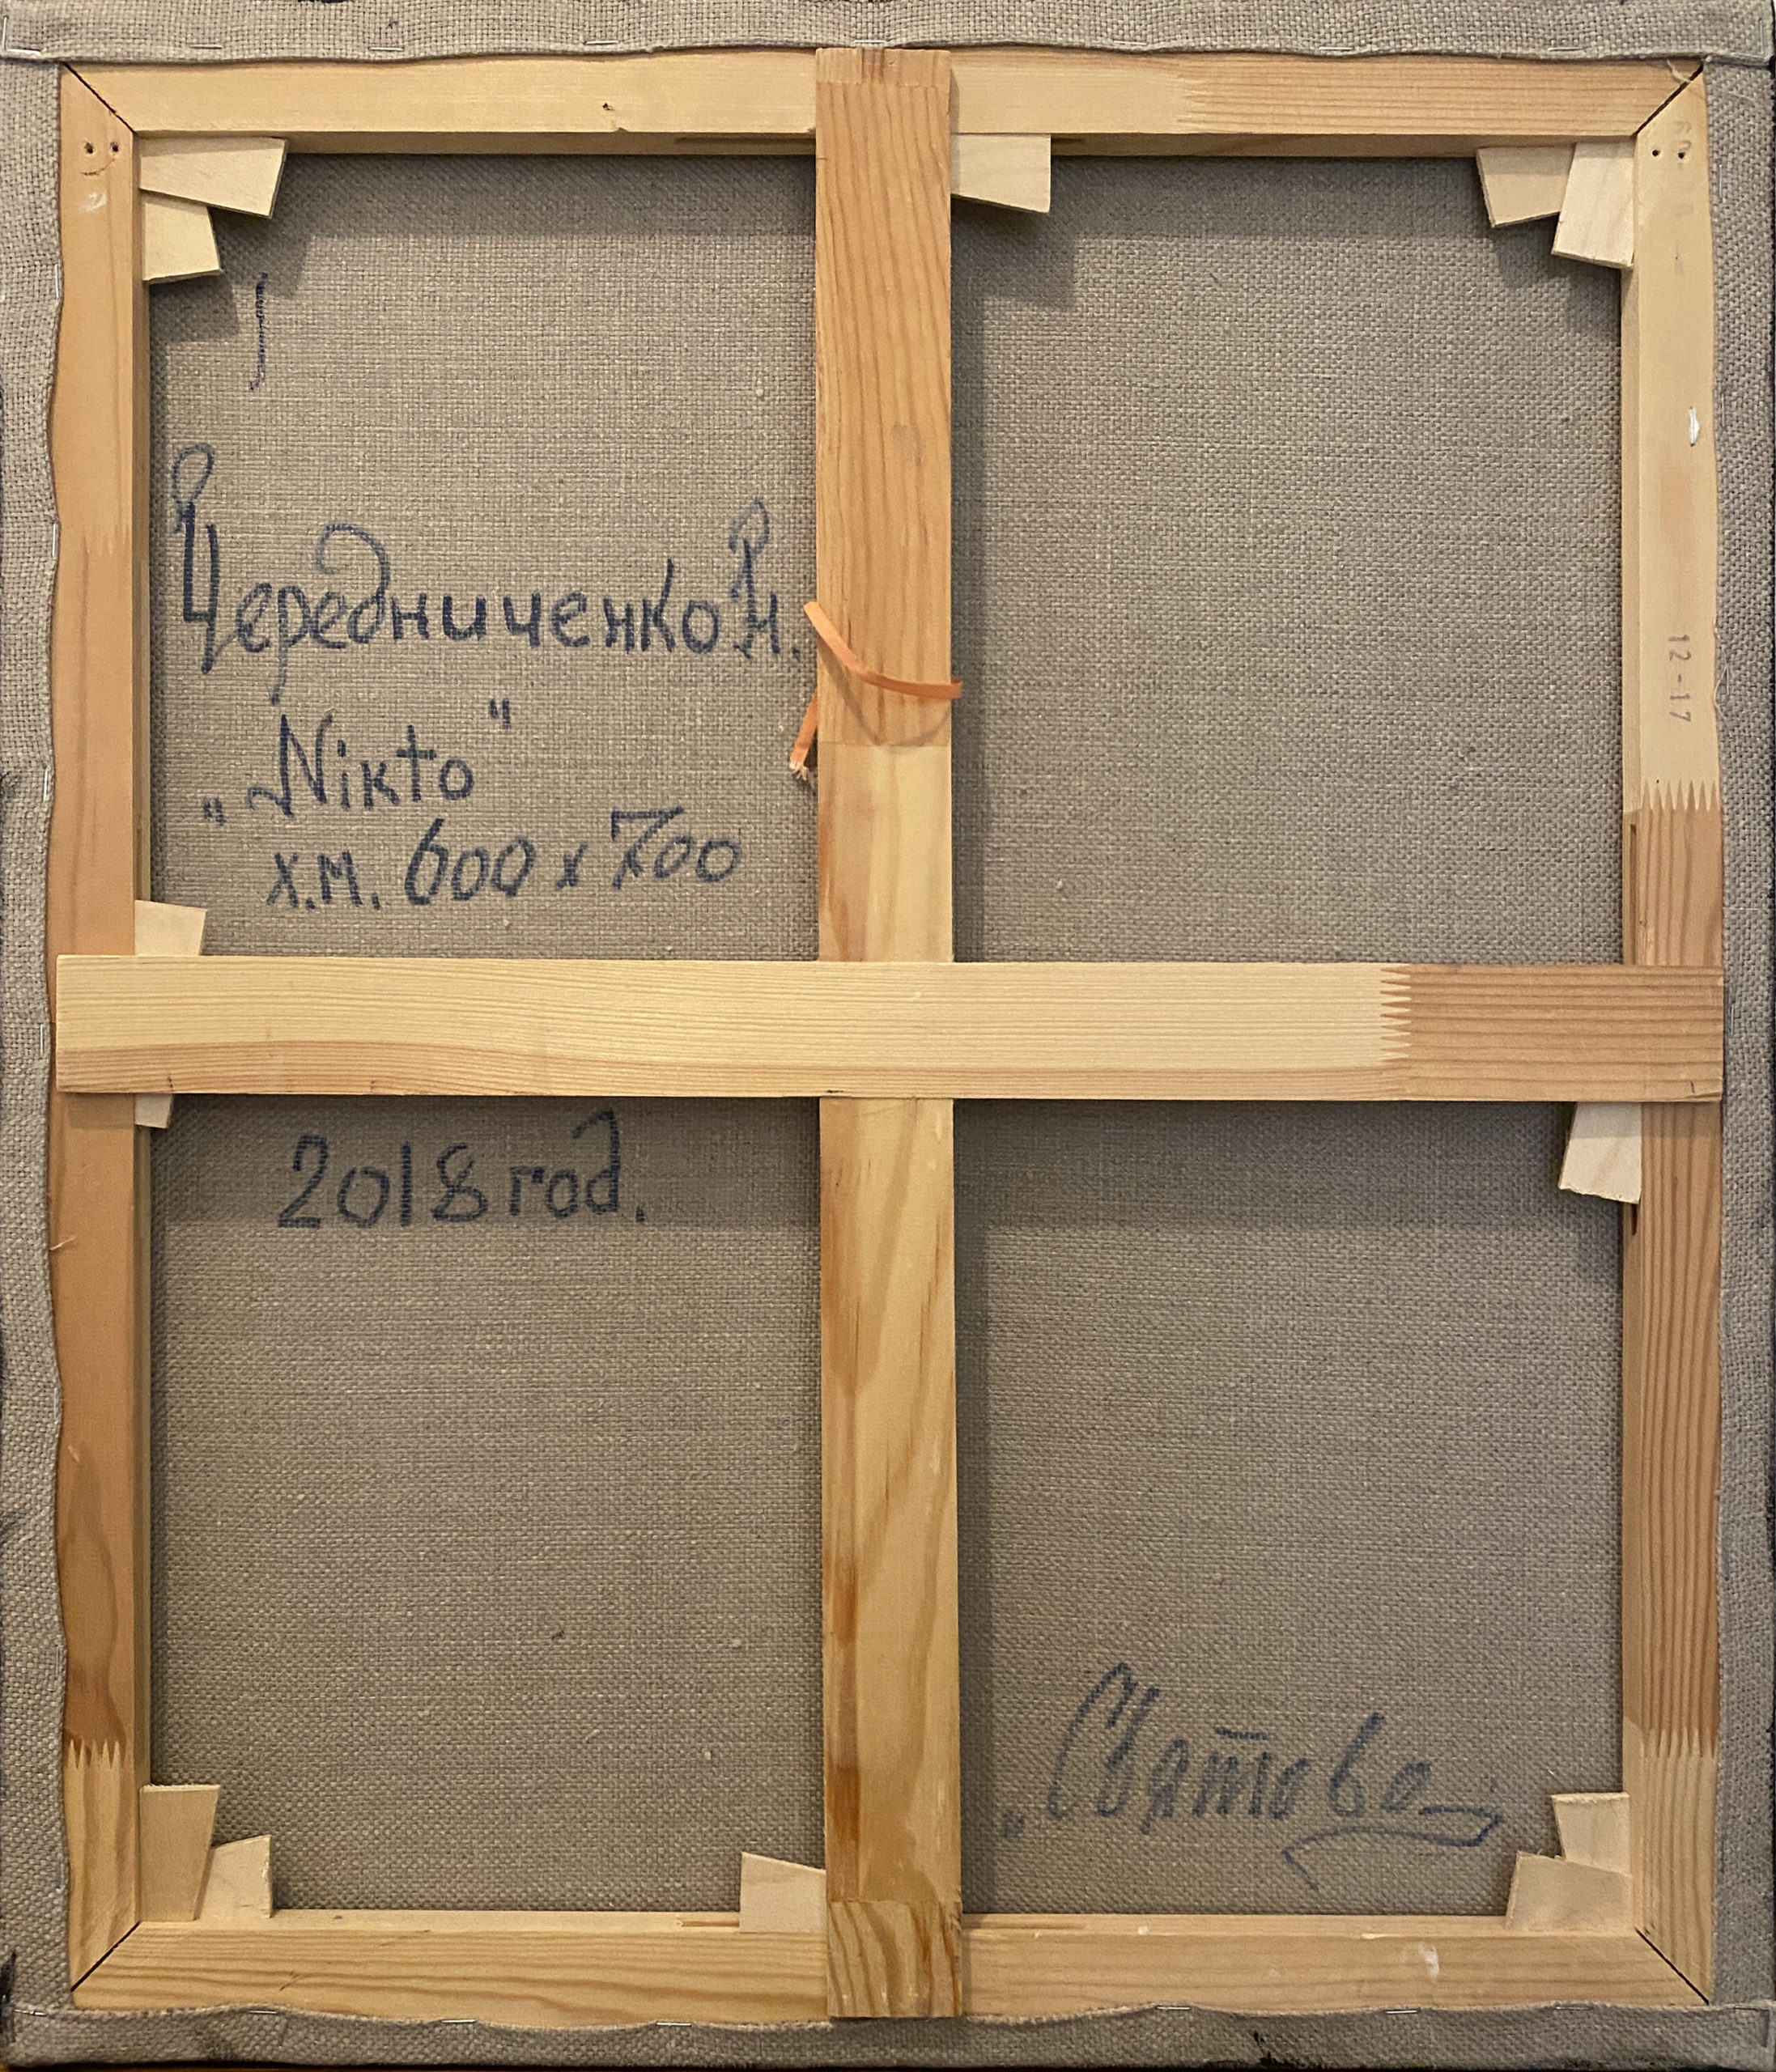 Чередниченко Н.
„Nikto"
х.м. 600 х 700
12-17
2018 год.